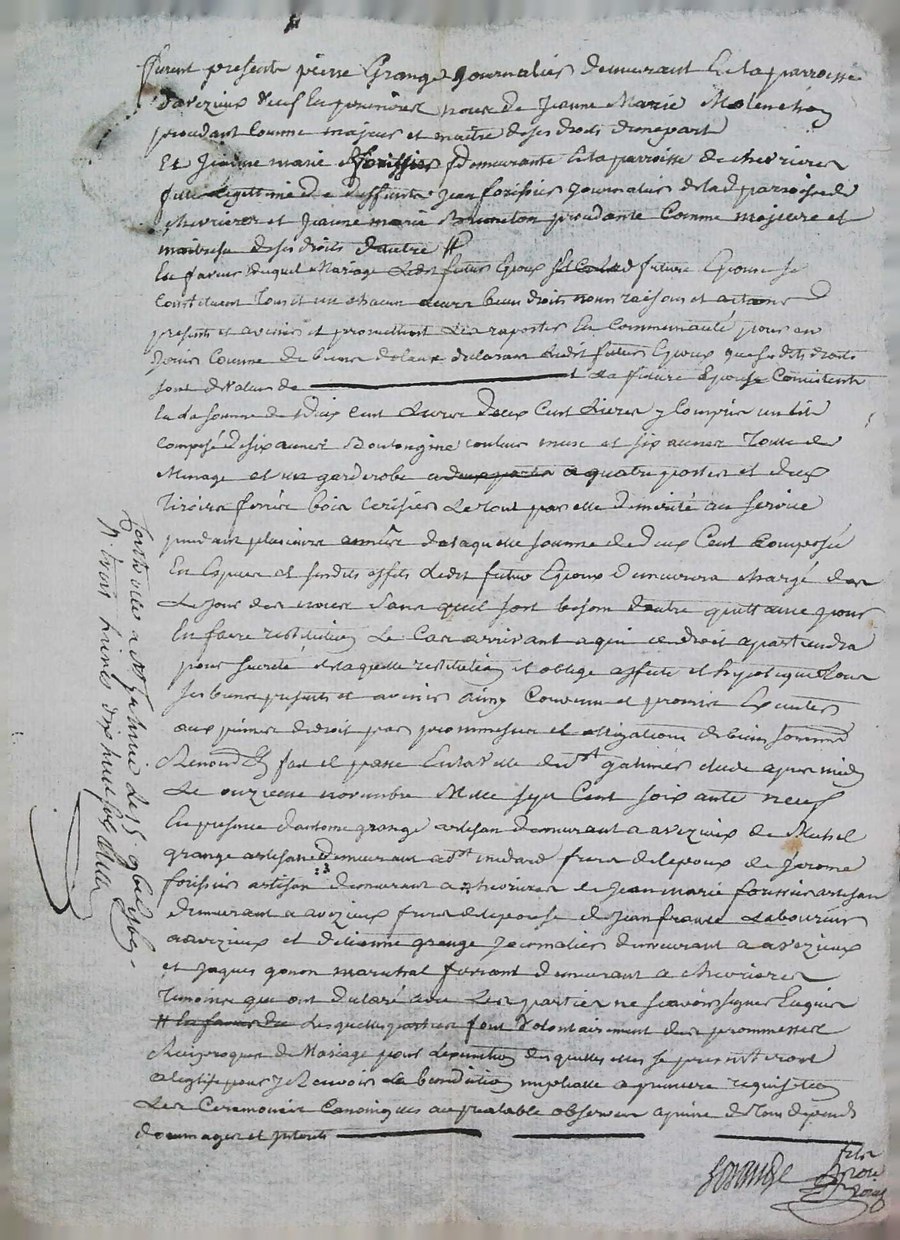 furent presents pierre Grange Journalier demeurant en la parroisse
d'avezieux veuf en premiere noces de Jeanne Marie
procedant comme majeur et maitre de ses droits d'une part
Et Jeanne marie forissier demeurante en la paroisse de chevrieres
fille legittime de deffunts Jean forissier Journalier de lad parroisse de
chevrieres et Jeanne marie Bruneton procedante comme majeure et
maitresse de ses droits d'autre #
En faveur duquel Mariage ledit futur Epoux et lad future Epouse se
Constituent tous et un chacun leurs biens droits noms raisons et actions
presents et avenir et promettent les raporter en Communauté pour en
Jouir comme de biens declarant ledit futur Epoux que sesdits droits
sont de valeur de et la future Epouse Consistente
en la somme de deux Cent Livres y compris un lit
composé de six aunes Boulongine couleur musc et six aunes Toille de
Menage et un garderobe a quatre portes et deux
Tiroirs ferrée bois cerisier le tout par elle demerité au service
pendant plusieurs années de laquelle somme de deux Cent composée
En Especes et susdits effets ledit futur Epoux demeurera chargé des
Le Jour des noces Sans quil soit besoin d'autre quittance pour
En faire restitution Le Cas arrivant a qui de droit apartiendra
pour sureté de laquelle restitution il oblige affecte et hypoteque tous
ses biens presents et avenir ainsy Convenu et promis Executer
aux peines de droit par promesses et obligations de biens soumis
Renond & fait et passé En la Ville de St galmier etude apres midy
Le onzieme novembre Mille Sept Cent Soixante neuf
En presence d'antoine grange artisan demeurant a avezieux de Michel
grange artisan demeurant a St medard freres de l'epoux de Jerome
forissier artisan demeurant a chevrieres de Jean marie forissier artisan
demeurant a avezieux freres de l'epouse de Jean france Laboureur
a avezieux et d'etienne grange Journalier demeurant a avezieux
et Jaques gonon marechal ferrant demeurant a chevrieres
Temoins qui ont declaré avec Les parties ne scavoir signer Enquis
# En faveur du Lesquelles parties font Volontairement des prommesses
Reciproques de Mariage pour l'execution desquelles elles se presenteront
a leglise pour y Recevoir La benediction nuptialle a premiere requisition
Les Ceremonies Canoniques au prealable observées a peine de tous depends
dommages et interets
Controllé a St galmier le 15 9bre 1769
R trois livres dix huit sols